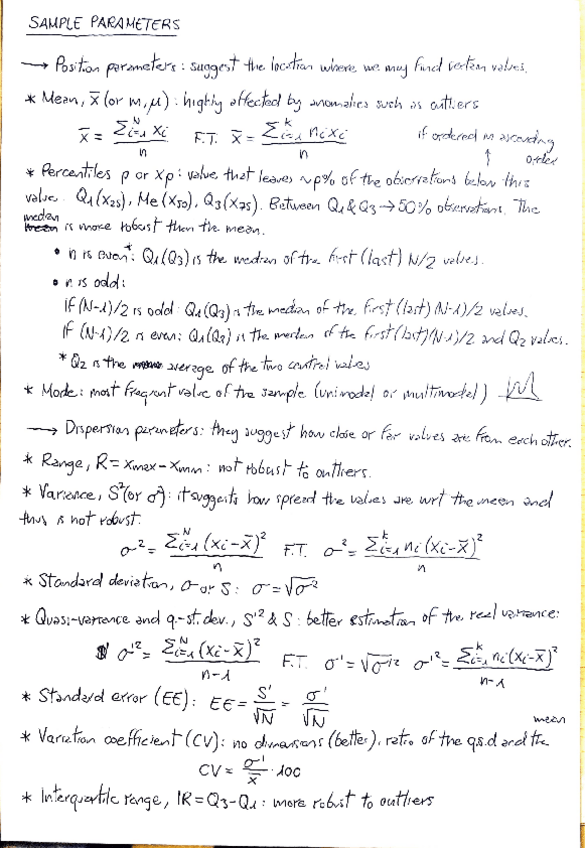 SAMPLE PARAMETERS
→ Position parameters: suggest the location where we may find certain values.
* Mean, x̄ (or m, μ): highly affected by anomalies such as outliers
x̄ = Σᵢ₌₁ᴺ xᵢ / n F.T. x̄ = Σᵢ₌₁ᵏ nᵢxᵢ / n if ordered in ascending order ↑
* Percentiles p or Xp: value that leaves ~p% of the observations below this
value. Q1(X25), Me(X50), Q3(X75). Between Q1 & Q3 → 50% observations. The
median is more robust than the mean.
• n is even*: Q1(Q3) is the median of the first (last) N/2 values.
• n is odd:
if (N-1)/2 is odd: Q1(Q3) is the median of the first (last) (N-1)/2 values.
if (N-1)/2 is even: Q1(Q3) is the median of the first (last) (N-1)/2 and Q2 values.
* Q2 is the average of the two central values
* Mode: most frequent value of the sample (unimodal or multimodal)
→ Dispersion parameters: they suggest how close or far values are from each other.
* Range, R = Xmax - Xmin: not robust to outliers.
* Variance, S² (or σ²): it suggests how spread the values are wrt the mean and
thus is not robust.
σ² = Σᵢ₌₁ᴺ (xᵢ - x̄)² / n F.T. σ² = Σᵢ₌₁ᵏ nᵢ(xᵢ - x̄)² / n
* Standard deviation, σ or S: σ = √σ²
* Quasi-variance and q-st.dev., S'² & S: better estimation of the real variance:
σ'² = Σᵢ₌₁ᴺ (xᵢ - x̄)² / n-1 F.T. σ' = √σ'² σ'² = Σᵢ₌₁ᵏ nᵢ(xᵢ - x̄)² / n-1
* Standard error (EE): EE = S'/√N = σ'/√N
* Variation coefficient (CV): no dimensions (better), ratio of the q.s.d and the mean
CV = σ'/x̄ · 100
* Interquartile range, IR = Q3 - Q1: more robust to outliers